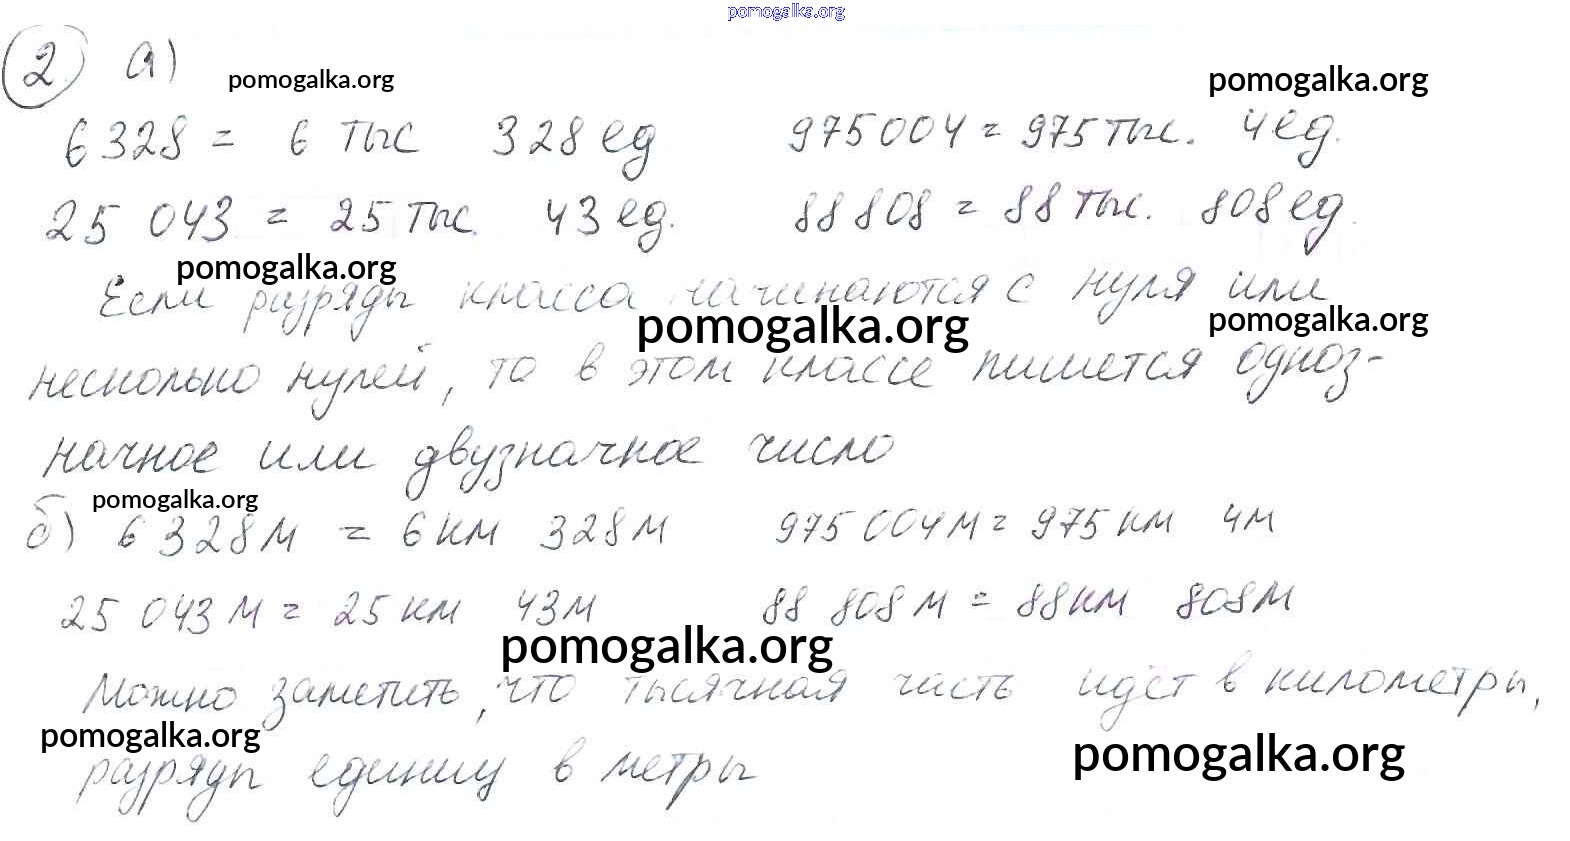 pomogalka.org
2 а)
pomogalka.org pomogalka.org
6 328 = 6 тыс 328 ед 975 004 = 975 тыс. 4 ед.
25 043 = 25 тыс. 43 ед. 88 808 = 88 тыс. 808 ед.
pomogalka.org
Если разряды класса начинаются с нуля или
pomogalka.org pomogalka.org
несколько нулей, то в этом классе пишется одноз-
начное или двузначное число
pomogalka.org
б) 6 328 м = 6 км 328 м 975 004 м = 975 км 4 м
25 043 м = 25 км 43 м 88 808 м = 88 км 808 м
pomogalka.org
Можно заметить, что тысячная часть идёт в километры,
pomogalka.org pomogalka.org
разряды единиц в метры